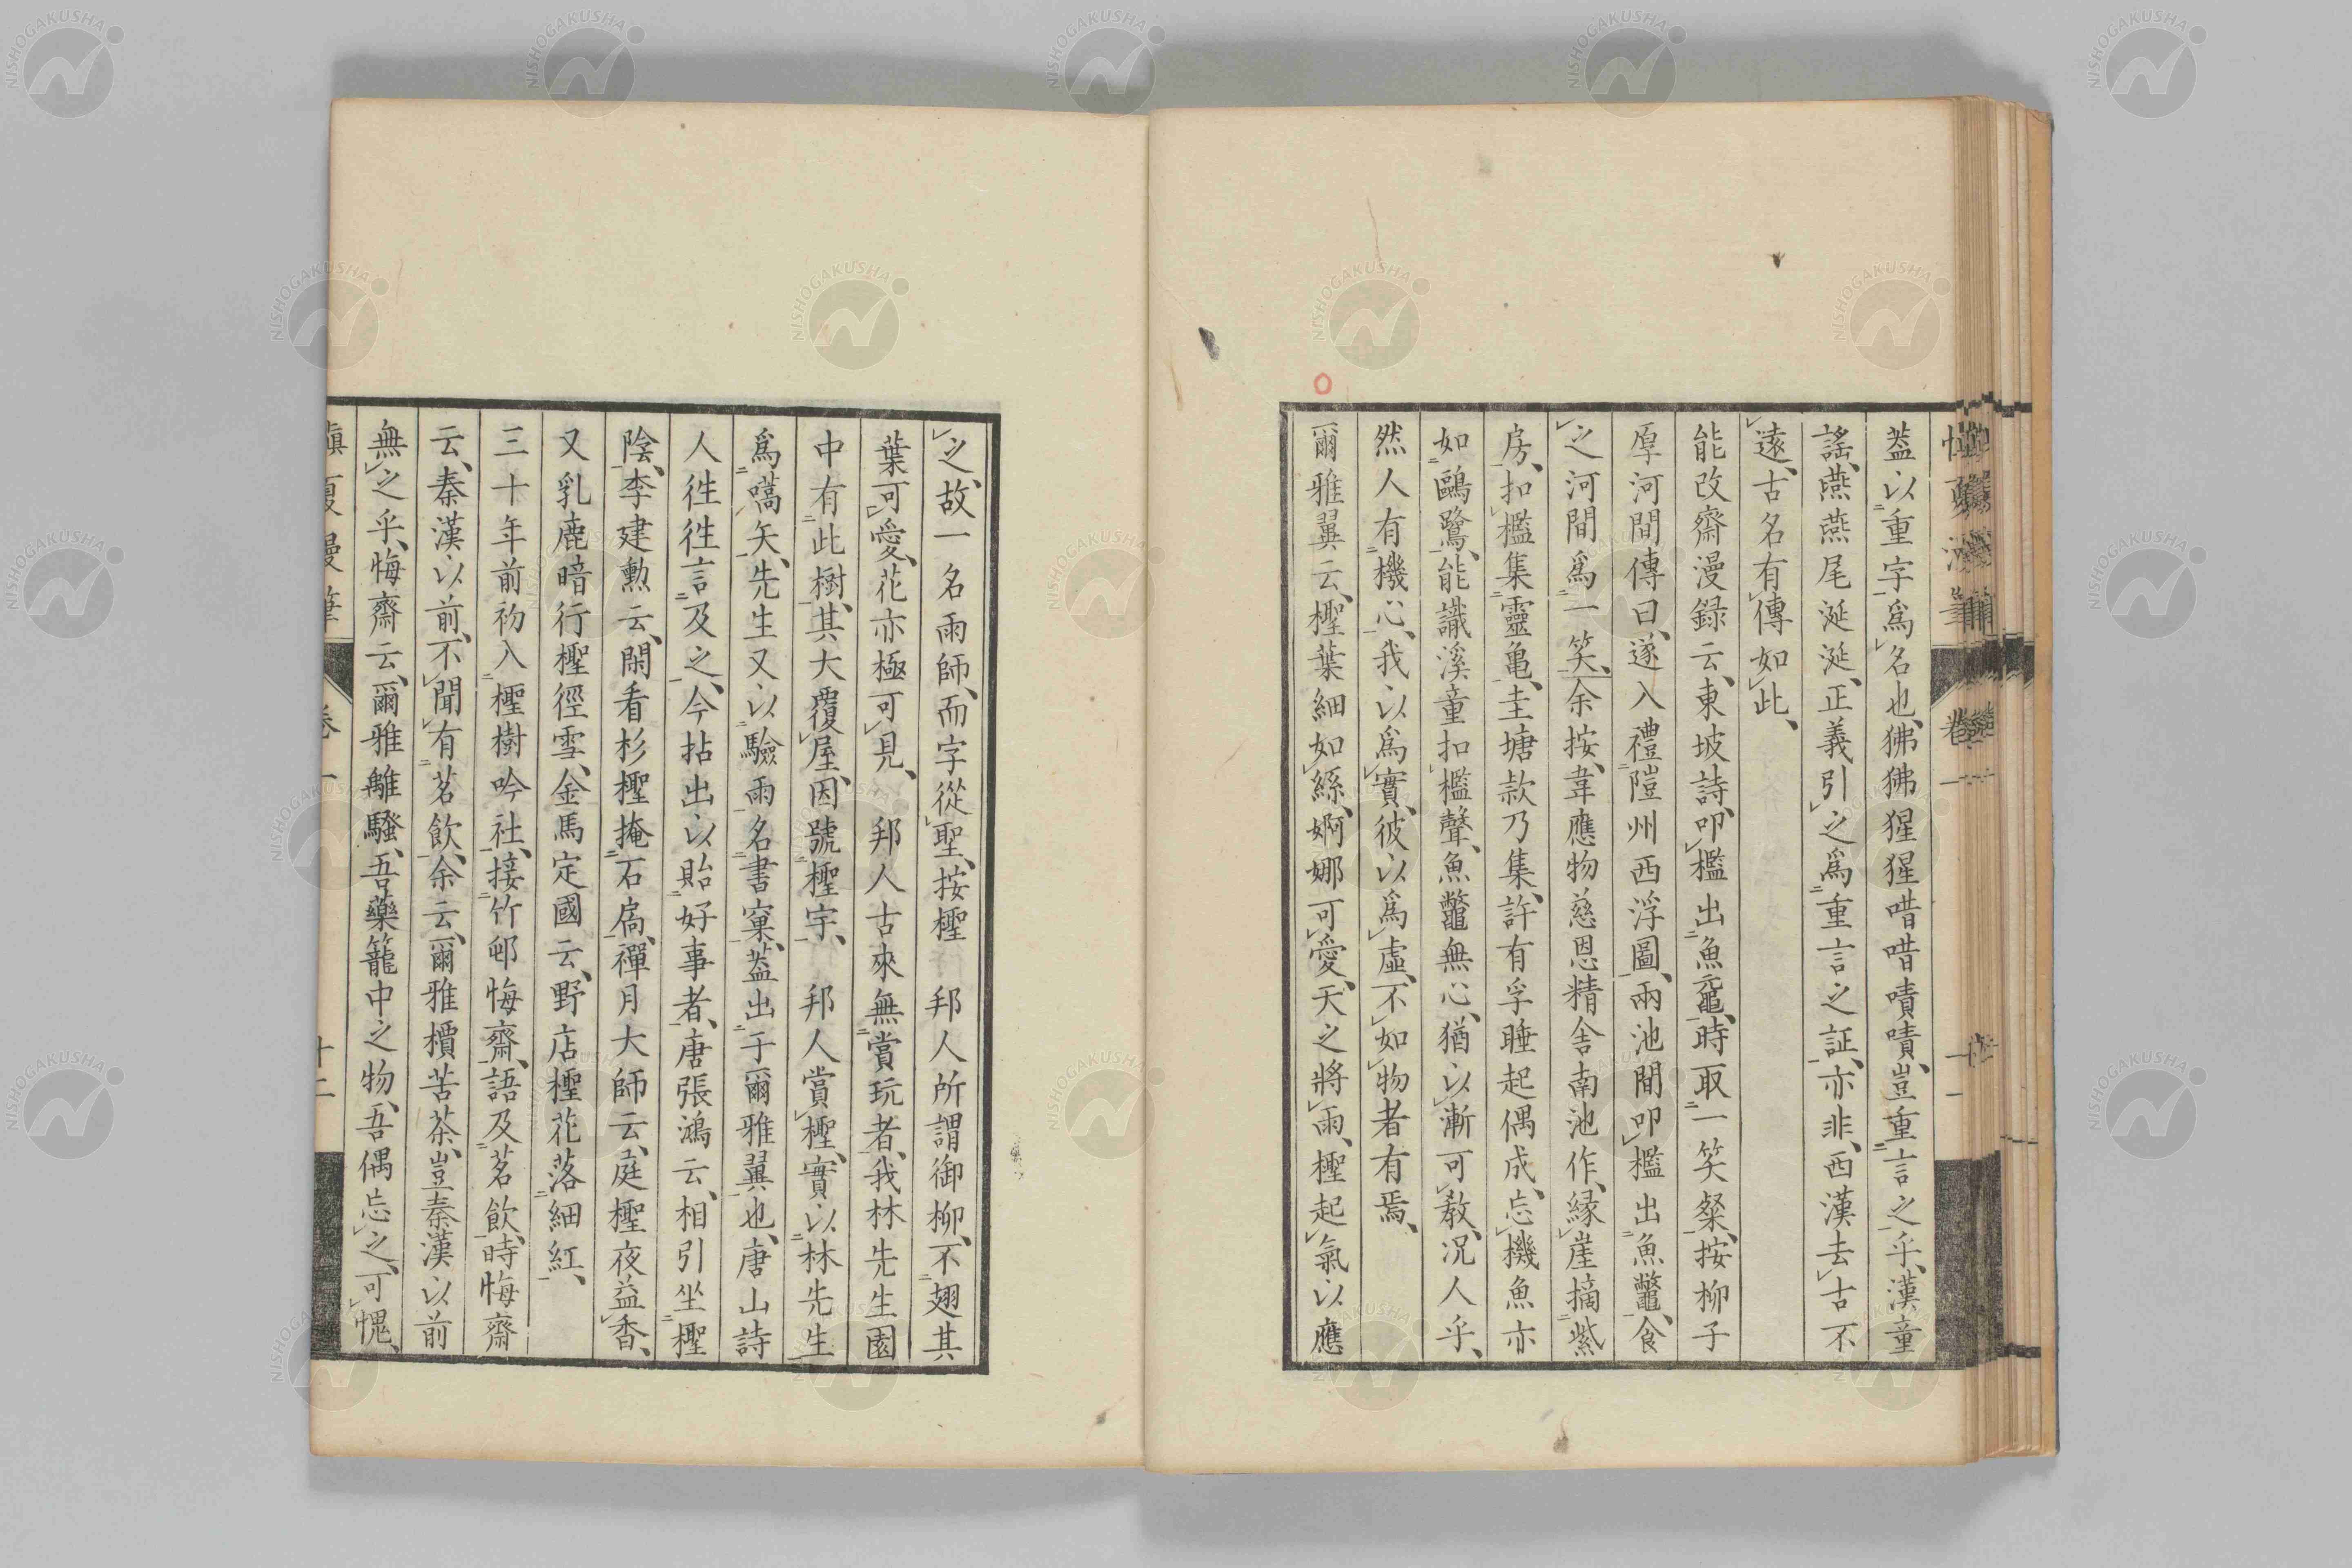 葢以重字爲名也狒狒猩猩唶唶嘖嘖豈重言之乎漢童
謡燕燕尾涎涎正義引之爲重言之証亦非西漢去古不
遠古名有傳如此
能改齋漫録云東坡詩叩檻出魚黿時取一笑粲按柳子
厚河間傳曰遂入禮隑州西浮圖兩池間叩檻出魚鼈食
之河間爲一笑余按韋應物慈恩精舍南池作縁崖摘紫
房扣檻集靈亀圭塘款乃集許有孚睡起偶成忘機魚亦
如鷗鷺能識溪童扣檻聲魚鼈無心猶以漸可教况人乎
然人有機心我以爲實彼以爲虛不如物者有焉
爾雅翼云檉葉細如絲婀娜可愛天之將雨檉起氣以應
之故一名雨師而字從聖按檉 邦人所謂御柳不翅其
葉可愛花亦極可見 邦人古來無賞玩者我林先生園
中有此樹其大覆屋因號檉宇 邦人賞檉實以林先生
爲嚆矢先生又以驗雨名書窠葢出于爾雅翼也唐山詩
人徃徃言及之今拈出以貽好事者唐張鴻云相引坐檉
陰李建勲云閑看杉檉掩石扃禪月大師云庭檉夜益香
又乳鹿暗行檉徑雪金馬定國云野店檉花落細紅
三十年前初入檉樹吟社接竹邨悔齋語及茗飲時悔齋
云秦漢以前不聞有茗飲余云爾雅檟苦荼豈秦漢以前
無之乎悔齋云爾雅離騷吾藥籠中之物吾偶忘之可愧
夏漫筆 卷一 十二